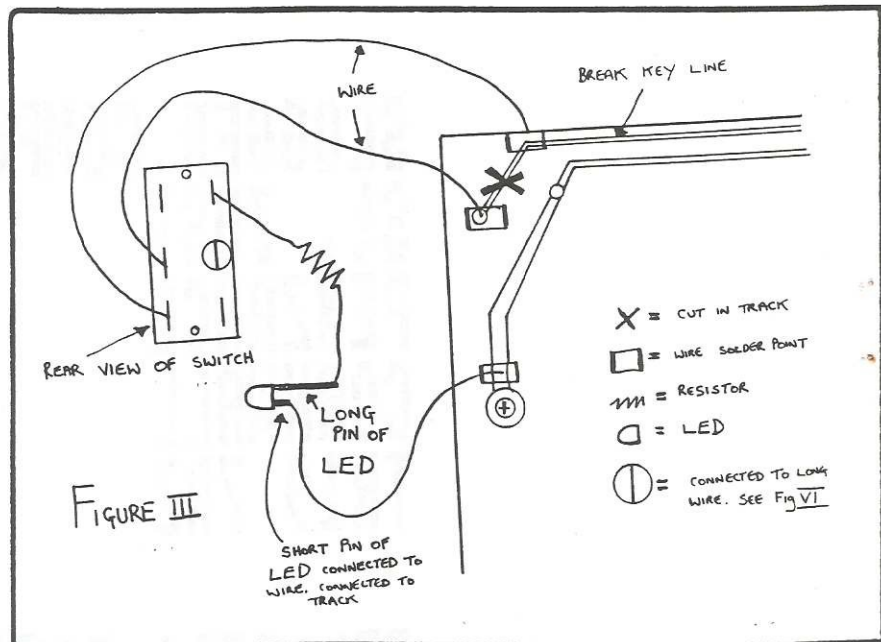 WIRE
BREAK KEY LINE
REAR VIEW OF SWITCH
LONG
PIN OF
LED
FIGURE III
SHORT PIN OF
LED CONNECTED TO
WIRE. CONNECTED TO
TRACK
X = CUT IN TRACK
= WIRE SOLDER POINT
= RESISTOR
= LED
= CONNECTED TO LONG
WIRE. SEE Fig VI